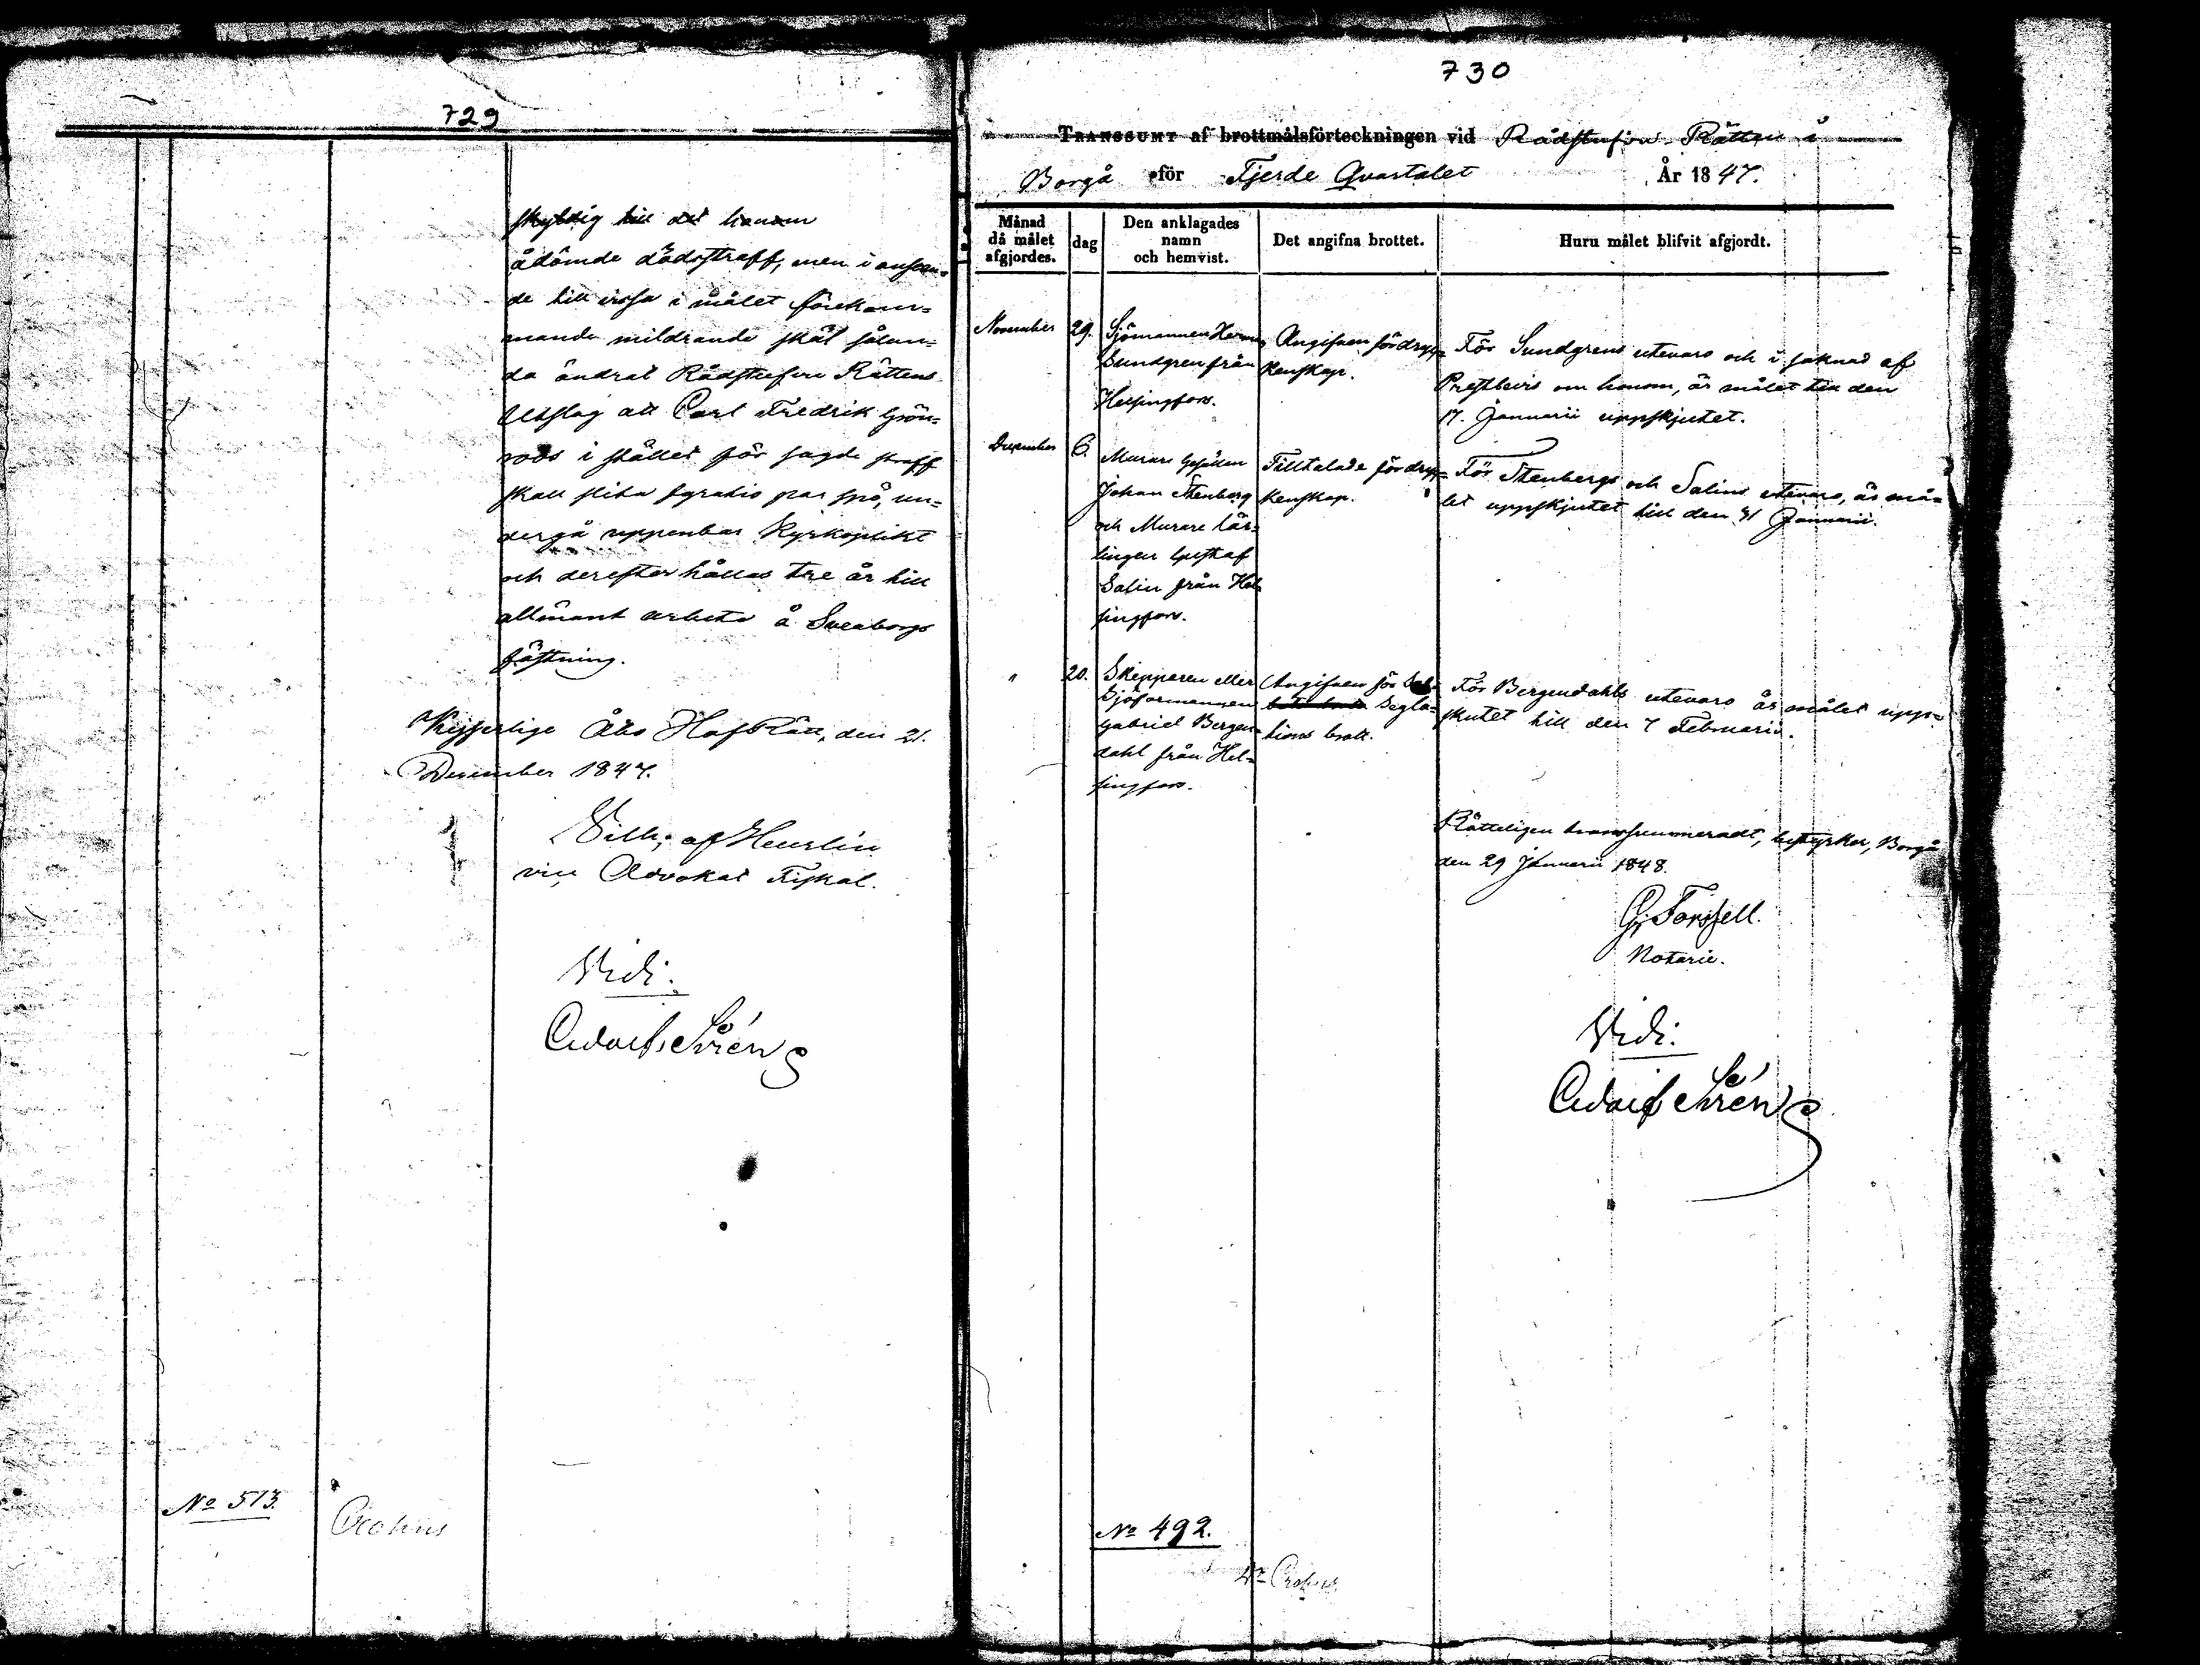 729
skyldig till det honom
ådömde dödsstraff, men i anseen-
de till vissa i målet förekom-
mande mildrande skäl sålun-
da ändrat Rådstufvu Rättens
Utslag att Carl Fredrik Grön-
roos i stället för sagde straff
skall slita fyratio par spö, un-
dergå uppenbar Kyrkoplikt
och derefter hållas tre år till
allmänt arbete å Sveaborgs
fästning.
Kejserlige Åbo HofRätt, den 21.
December 1847.
Vilh. af Heurlin
vice Advokat Fiskal.
Vidi:
No 513.
Crohns
730
TRANSSUMT af brottmålsförteckningen vid Rådstufvu-Rätten i
Borgå för Fjerde Qvartalet År 1847.
Månad då målet afgjordes.
dag
Den anklagades namn och hemvist.
Det angifna brottet.
Huru målet blifvit afgjordt.
November 29.
Sjömannen Herm.
Sundgren från
Helsingfors.
Angifven för dryc-
kenskap.
För Sundgrens utevaro och i saknad af
Prestbevis om honom, är målet till den
17. Januarii uppskjutet.
December 6.
Murare Gesällen
Johan Stenberg
och Murare lär-
lingen Gustaf
Salin från Hel-
singfors.
Tilltalade för dryc-
kenskap.
För Stenbergs och Salins utevaro, är må-
let uppskjutet till den 31 Januarii.
" 20.
Skepparen eller
Sjöformannen
Gabriel Bergen-
dahl från Hel-
singfors.
Angifven för
Segla-
tions brott.
För Bergendahls utevaro är målet upp-
skutet till den 7 Februarii.
Rätteligen transsummeradt, bestyrker, Borgå
den 29 Januarii 1848.
G. Forssell.
Notarie.
Vidi:
No 492.
Crohns